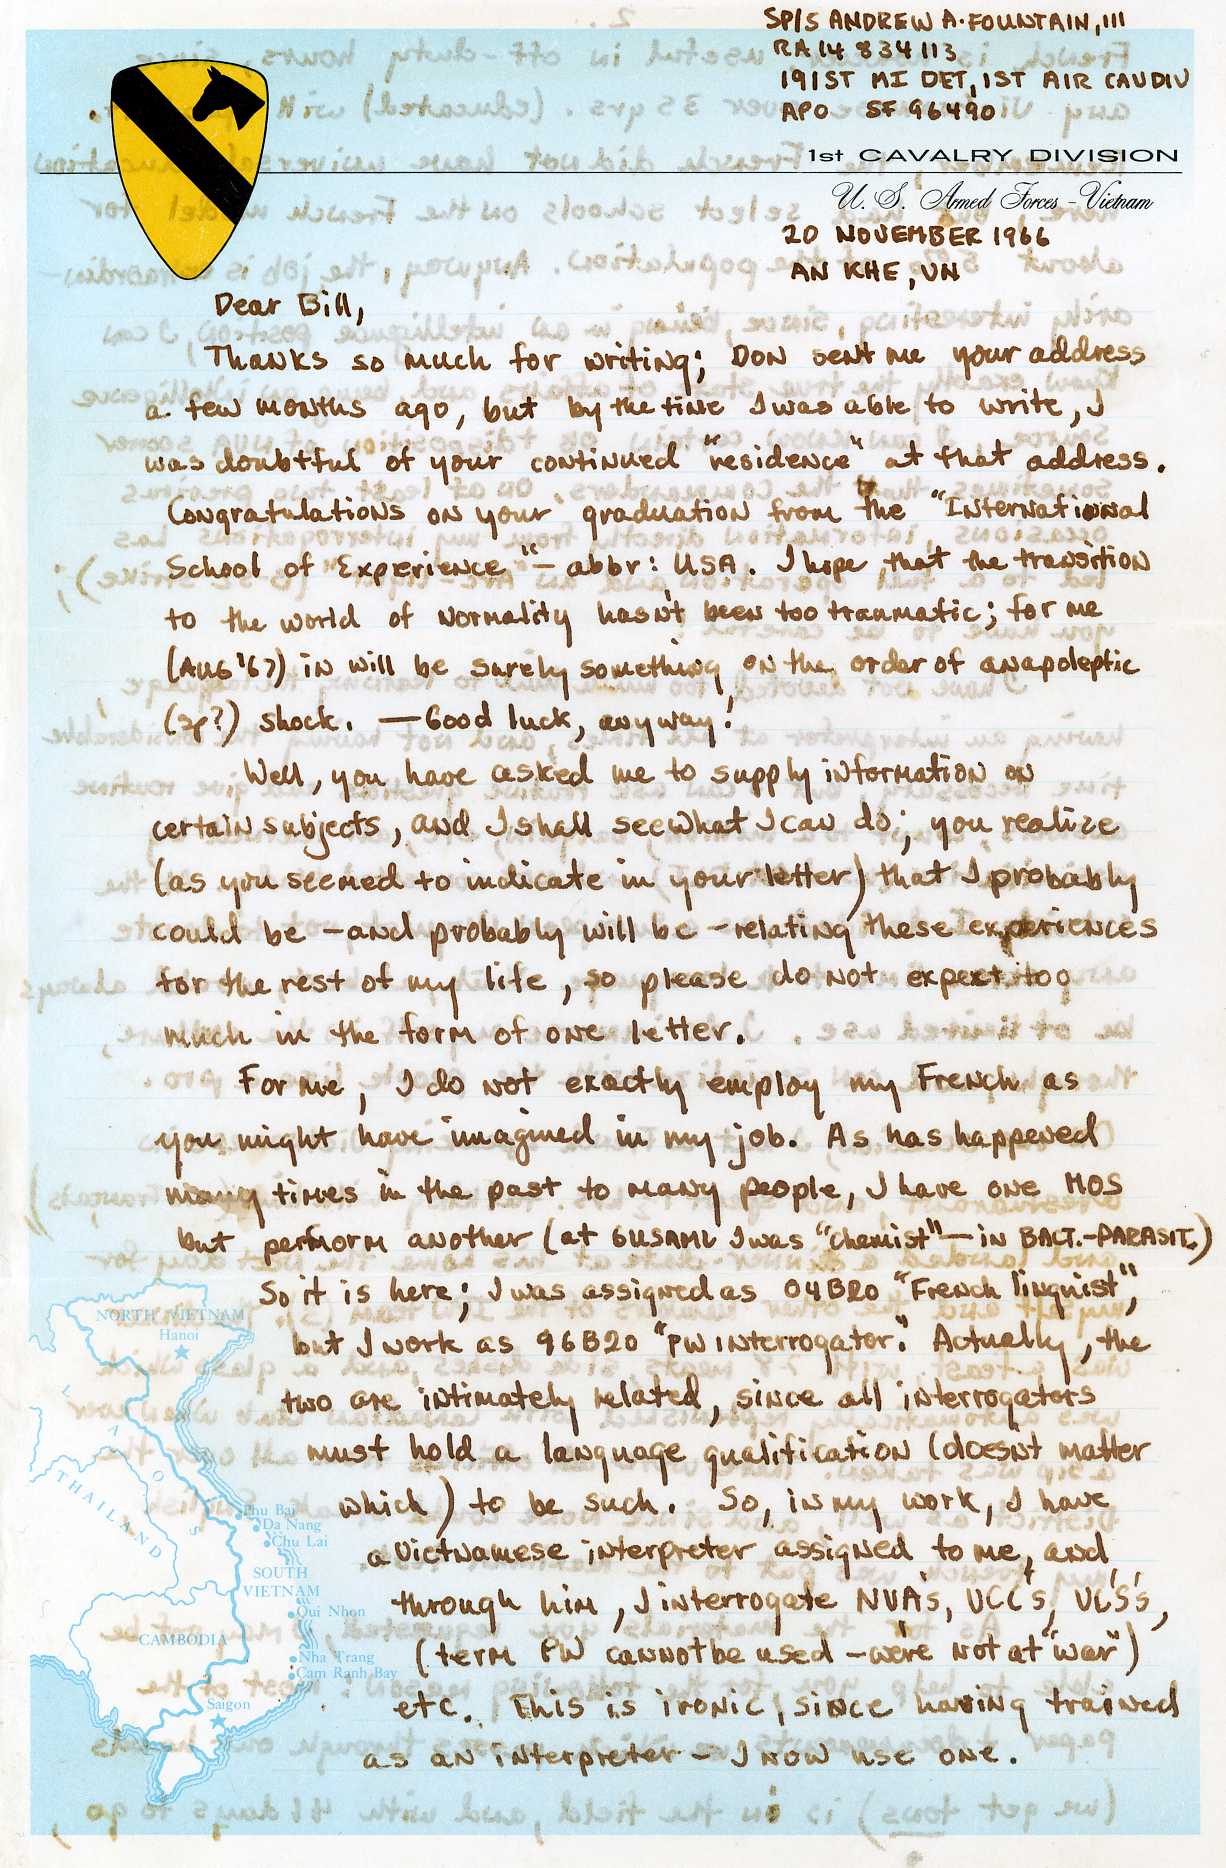 SP/5 ANDREW A. FOUNTAIN, III
RA 14 834 113
191ST MI DET, 1ST AIR CAV DIV
APO SF 96490
1st CAVALRY DIVISION
U. S. Armed Forces - Vietnam
20 NOVEMBER 1966
AN KHE, VN
Dear Bill,
Thanks so much for writing; Don sent me your address
a few months ago, but by the time I was able to write, I
was doubtful of your continued "residence" at that address.
Congratulations on your graduation from the "International
School of Experience" - abbr: USA. I hope that the transition
to the world of normality hasn't been too traumatic; for me
(Aug '67) in will be surely something on the order of anapoleptic
(sp?) shock. — Good luck, anyway!
Well, you have asked me to supply information on
certain subjects, and I shall see what I can do; you realize
(as you seemed to indicate in your letter) that I probably
could be - and probably will be - relating these experiences
for the rest of my life, so please do not expect too
much in the form of one letter.
For me, I do not exactly employ my French as
you might have imagined in my job. As has happened
many times in the past to many people, I have one MOS
but perform another (at 6USAML I was "chemist" — in BACT.-PARASIT.)
So it is here; I was assigned as 04B20 "French linquist",
but I work as 96B20 "PW interrogator." Actually, the
two are intimately related, since all interrogators
must hold a language qualification (doesn't matter
which) to be such. So, in my work, I have
a Vietnamese interpreter assigned to me, and
through him, I interrogate NVA's, VCC's, VCS's,
(term PW cannot be used - we're not at "war")
etc. This is ironic, since having trained
as an interpreter - I now use one.
NORTH VIETNAM
Hanoi
LAOS
THAILAND
Phu Bai
Da Nang
Chu Lai
SOUTH
VIETNAM
Qui Nhon
CAMBODIA
Nha Trang
Cam Ranh Bay
Saigon